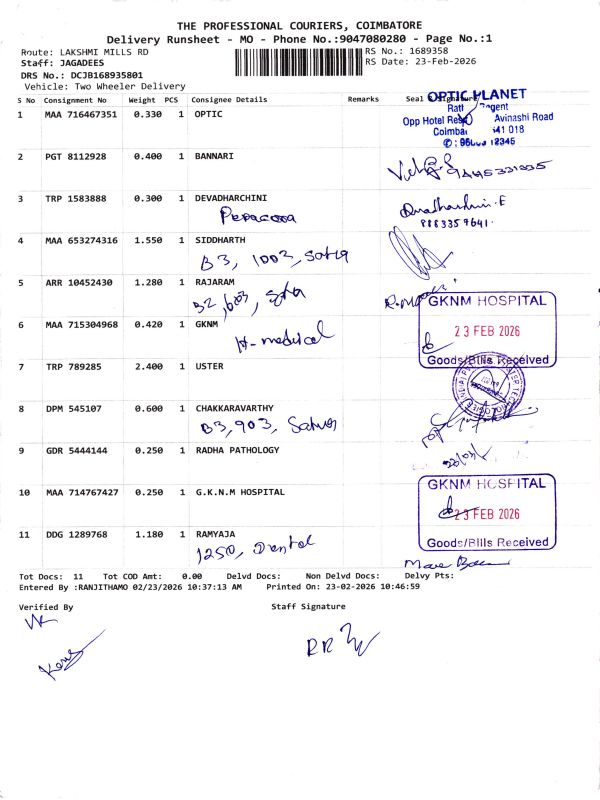 THE PROFESSIONAL COURIERS, COIMBATORE
Delivery Runsheet - MO - Phone No.:9047080280 - Page No.:1
Route: LAKSHMI MILLS RD
RS No.: 1689358
Staff: JAGADEES
RS Date: 23-Feb-2026
DRS No.: DCJB168935801
Vehicle: Two Wheeler Delivery
S No Consignment No Weight PCS Consignee Details Remarks Seal & Signature
OPTIC PLANET
1 MAA 716467351 0.330 1 OPTIC
Opp Hotel Avinashi Road
641 018
2 PGT 8112928 0.400 1 BANNARI
3 TRP 1583888 0.300 1 DEVADHARCHINI
Devadharshini.E
Peparcora
9883357641.
4 MAA 653274316 1.550 1 SIDDHARTH
B3, 1003, Satva
5 ARR 10452430 1.280 1 RAJARAM
B2, 603,
GKNM HOSPITAL
6 MAA 715304968 0.420 1 GKNM
23 FEB 2026
H-medical
Goods/Bills Received
7 TRP 789285 2.400 1 USTER
8 DPM 545107 0.600 1 CHAKKARAVARTHY
B3, 903,
9 GDR 5444144 0.250 1 RADHA PATHOLOGY
10 MAA 714767427 0.250 1 G.K.N.M HOSPITAL
GKNM HOSPITAL
23 FEB 2026
11 DDG 1289768 1.180 1 RAMYAJA
Goods/Bills Received
1250, Dental
Tot Docs: 11 Tot COD Amt: 0.00 Delvd Docs: Non Delvd Docs: Delvy Pts:
Entered By :RANJITHAMO 02/23/2026 10:37:13 AM Printed On: 23-02-2026 10:46:59
Verified By Staff Signature